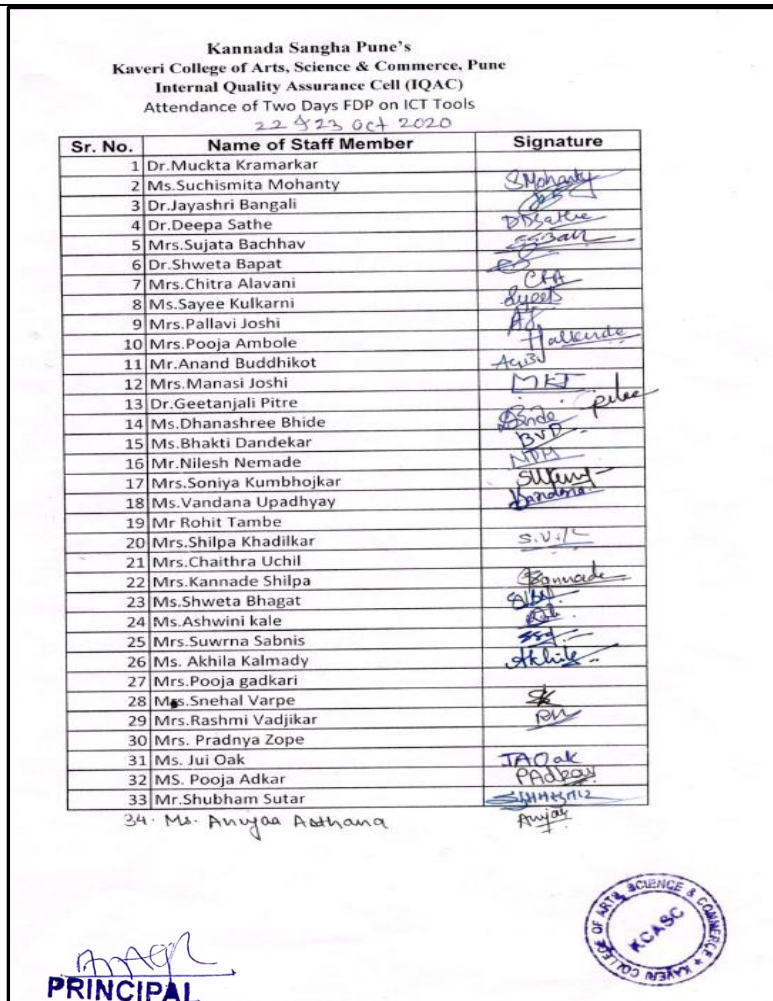 Kannada Sangha Pune's
Kaveri College of Arts, Science & Commerce, Pune
Internal Quality Assurance Cell (IQAC)
Attendance of Two Days FDP on ICT Tools
22 & 23 Oct 2020
Sr. No. Name of Staff Member Signature
1 Dr.Muckta Kramarkar
2 Ms.Suchismita Mohanty SMohanty
3 Dr.Jayashri Bangali
4 Dr.Deepa Sathe DDSathe
5 Mrs.Sujata Bachhav
6 Dr.Shweta Bapat
7 Mrs.Chitra Alavani CPA
8 Ms.Sayee Kulkarni
9 Mrs.Pallavi Joshi
10 Mrs.Pooja Ambole
11 Mr.Anand Buddhikot
12 Mrs.Manasi Joshi
13 Dr.Geetanjali Pitre
14 Ms.Dhanashree Bhide
15 Ms.Bhakti Dandekar BVD
16 Mr.Nilesh Nemade
17 Mrs.Soniya Kumbhojkar
18 Ms.Vandana Upadhyay Vandana
19 Mr Rohit Tambe
20 Mrs.Shilpa Khadilkar
21 Mrs.Chaithra Uchil
22 Mrs.Kannade Shilpa
23 Ms.Shweta Bhagat
24 Ms.Ashwini kale
25 Mrs.Suwrna Sabnis
26 Ms. Akhila Kalmady Akhila
27 Mrs.Pooja gadkari
28 Ms.Snehal Varpe
29 Mrs.Rashmi Vadjikar
30 Mrs. Pradnya Zope
31 Ms. Jui Oak JAOak
32 MS. Pooja Adkar PAdkar
33 Mr.Shubham Sutar
34. Ms. Anujaa Asthana Anujaa
KAVERI COLLEGE OF ARTS, SCIENCE & COMMERCE
KCASC
PRINCIPAL